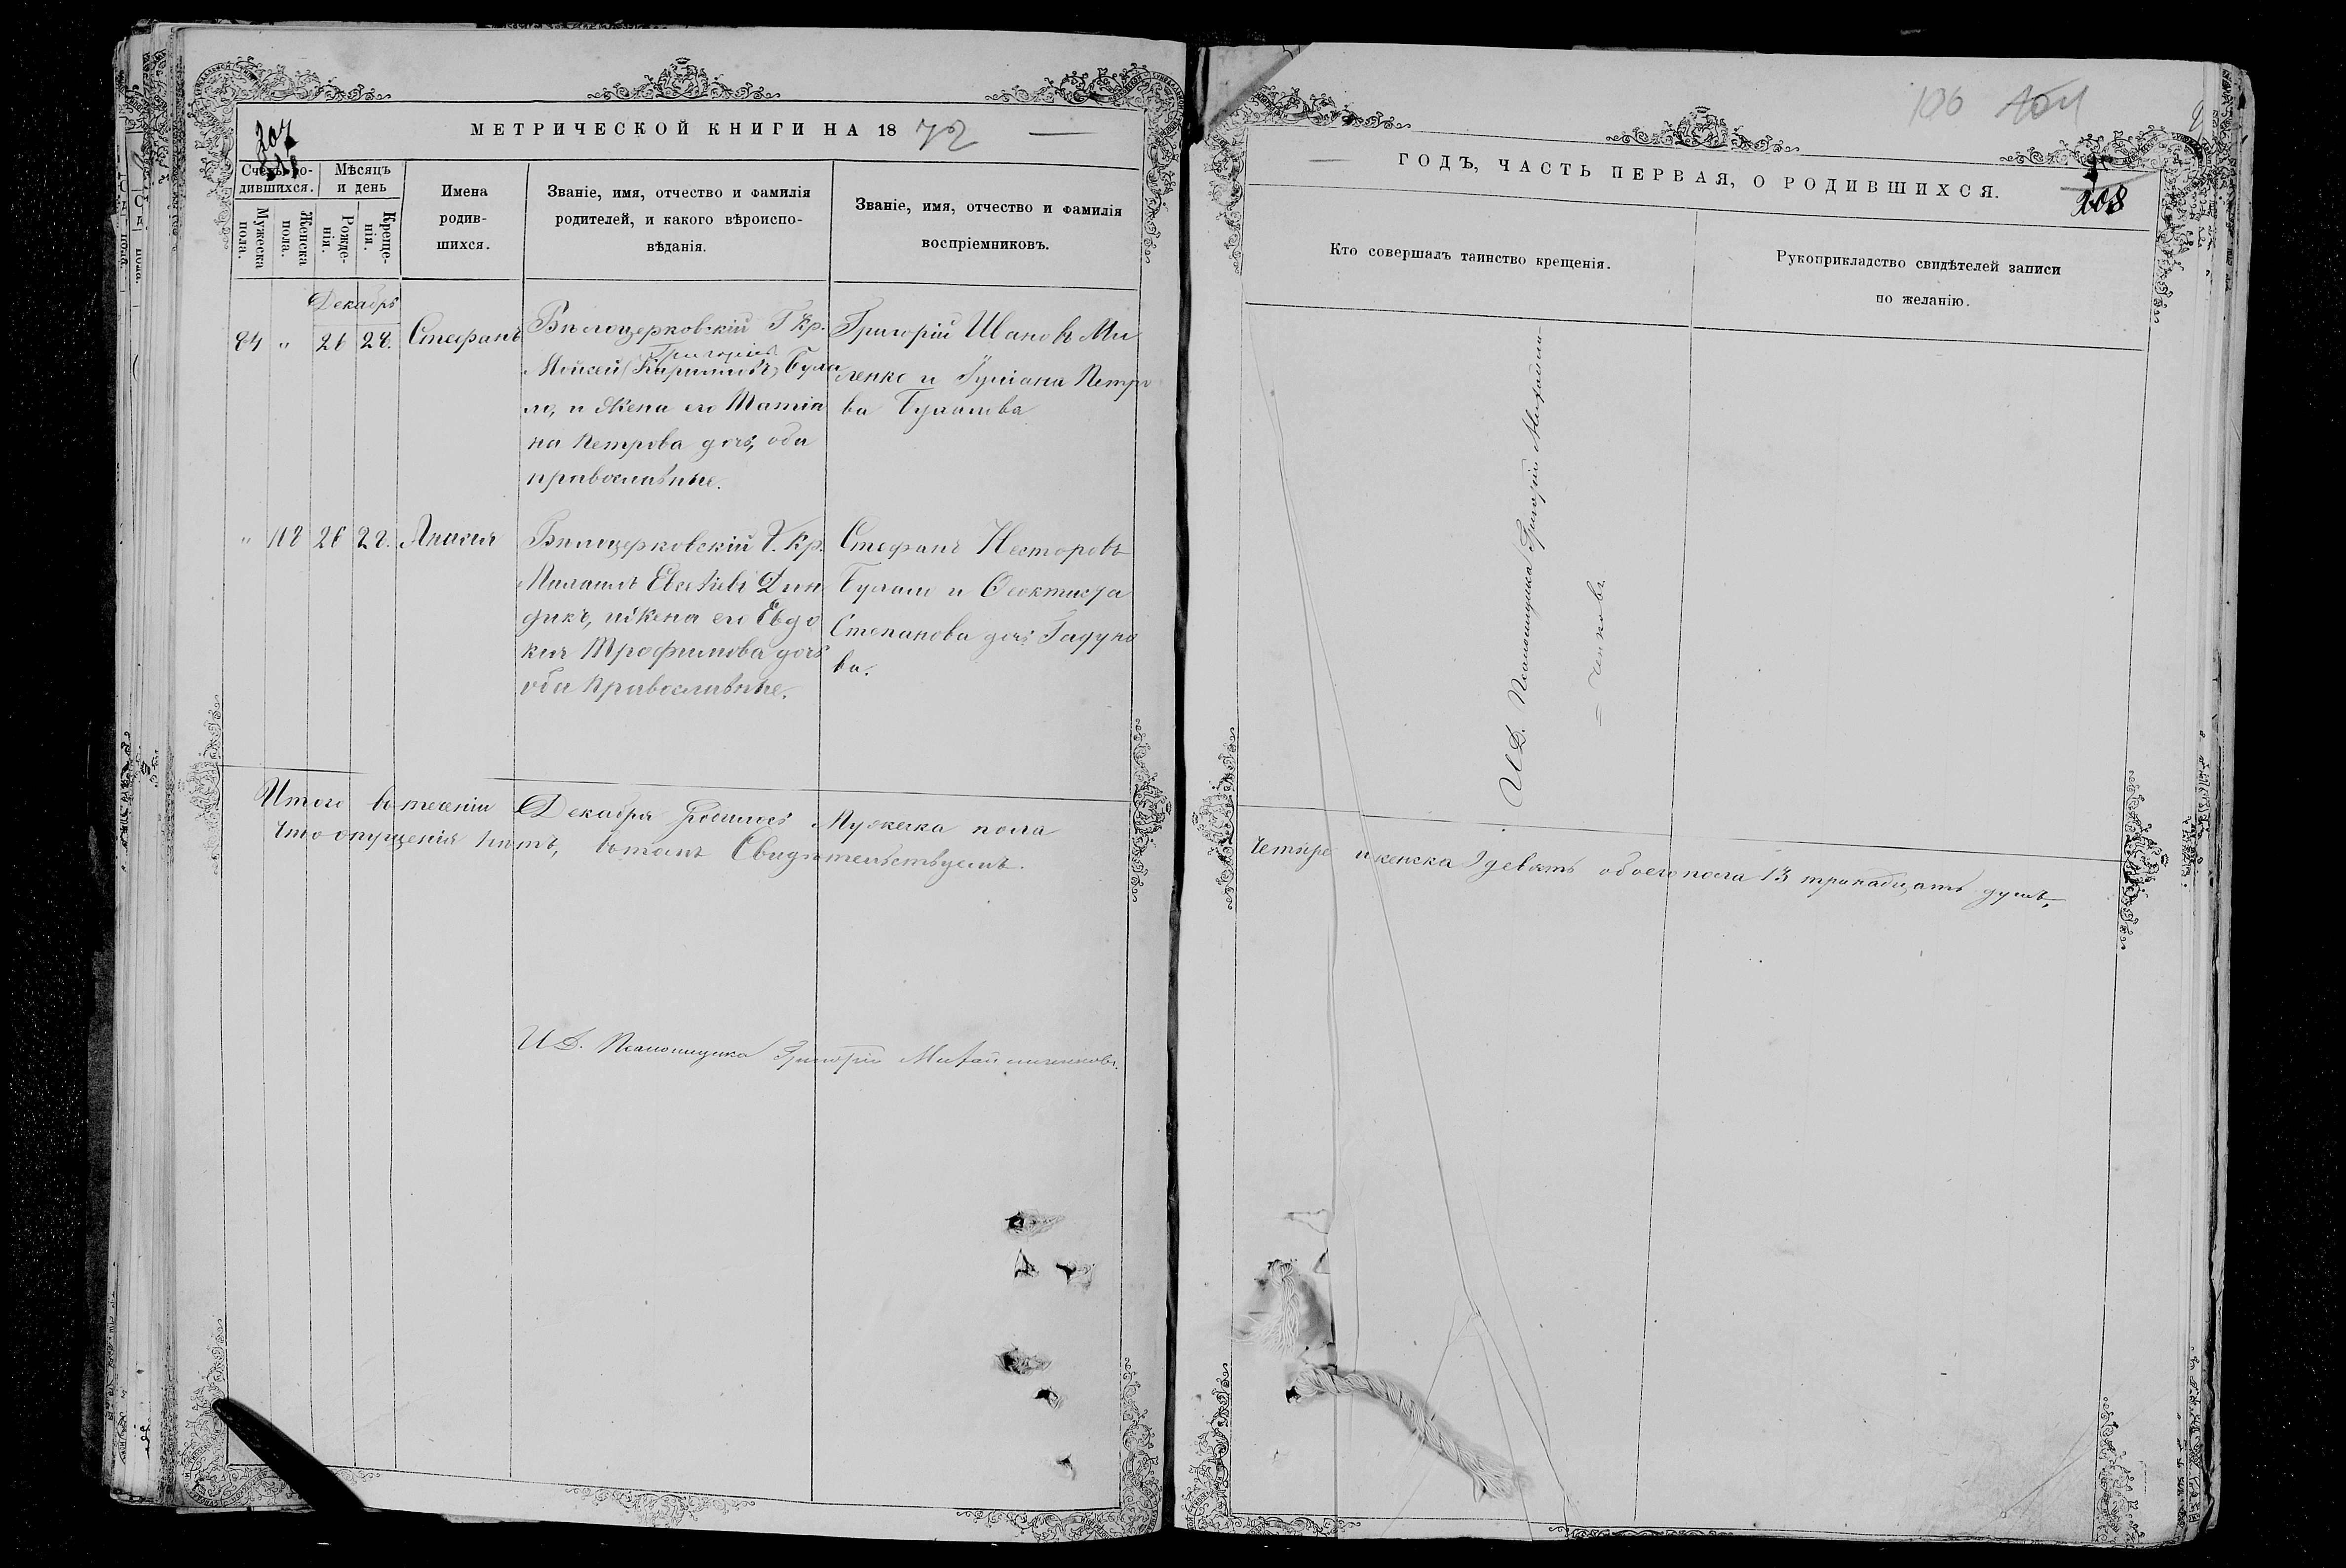 207
МЕТРИЧЕСКОЙ КНИГИ НА 18 72
Счетъ ро-
дившихся.
Мѣсяцъ
и день
Мужеска
пола.
Женска
пола.
Рожде-
нія.
Креще-
нія.
Имена
родив-
шихся.
Званіе, имя, отчество и фамилія
родителей, и какого вѣроиспо-
вѣданія.
Званіе, имя, отчество и фамилія
воспріемниковъ.
Декабрь
84 " 26 28. Стефанъ
Бѣлоцерковскій Г. Кр.
Григоріевъ
Мойсей
и жена его Татіа
на Петрова дочь, оба
православные.
Григорій Ивановъ Ми
ленко и Іуліана Петро
ва
" 112 26 28.
Бѣлоцерковскій Г. Кр.
Евсѣевъ Дин
дикъ, и жена его Евдо
кія Трофимова дочь
оба православные.
Стефанъ Несторовъ
и Феоктиста
Степанова дочь Гадуно
ва.
Итого въ теченіи Декабря родилось Мужеска пола
Что опущенія нѣтъ, въ томъ Свидѣтельствуемъ.
И. Д. Псаломщика Григорій Михайличенковъ.
106
208
ГОДЪ, ЧАСТЬ ПЕРВАЯ, О РОДИВШИХСЯ.
Кто совершалъ таинство крещенія.
Рукоприкладство свидѣтелей записи
по желанію.
И. Д. Псаломщика Григорій Михайли-
= ченковъ.
четыре и женска девять обоего пола 13 тринадцать душъ,